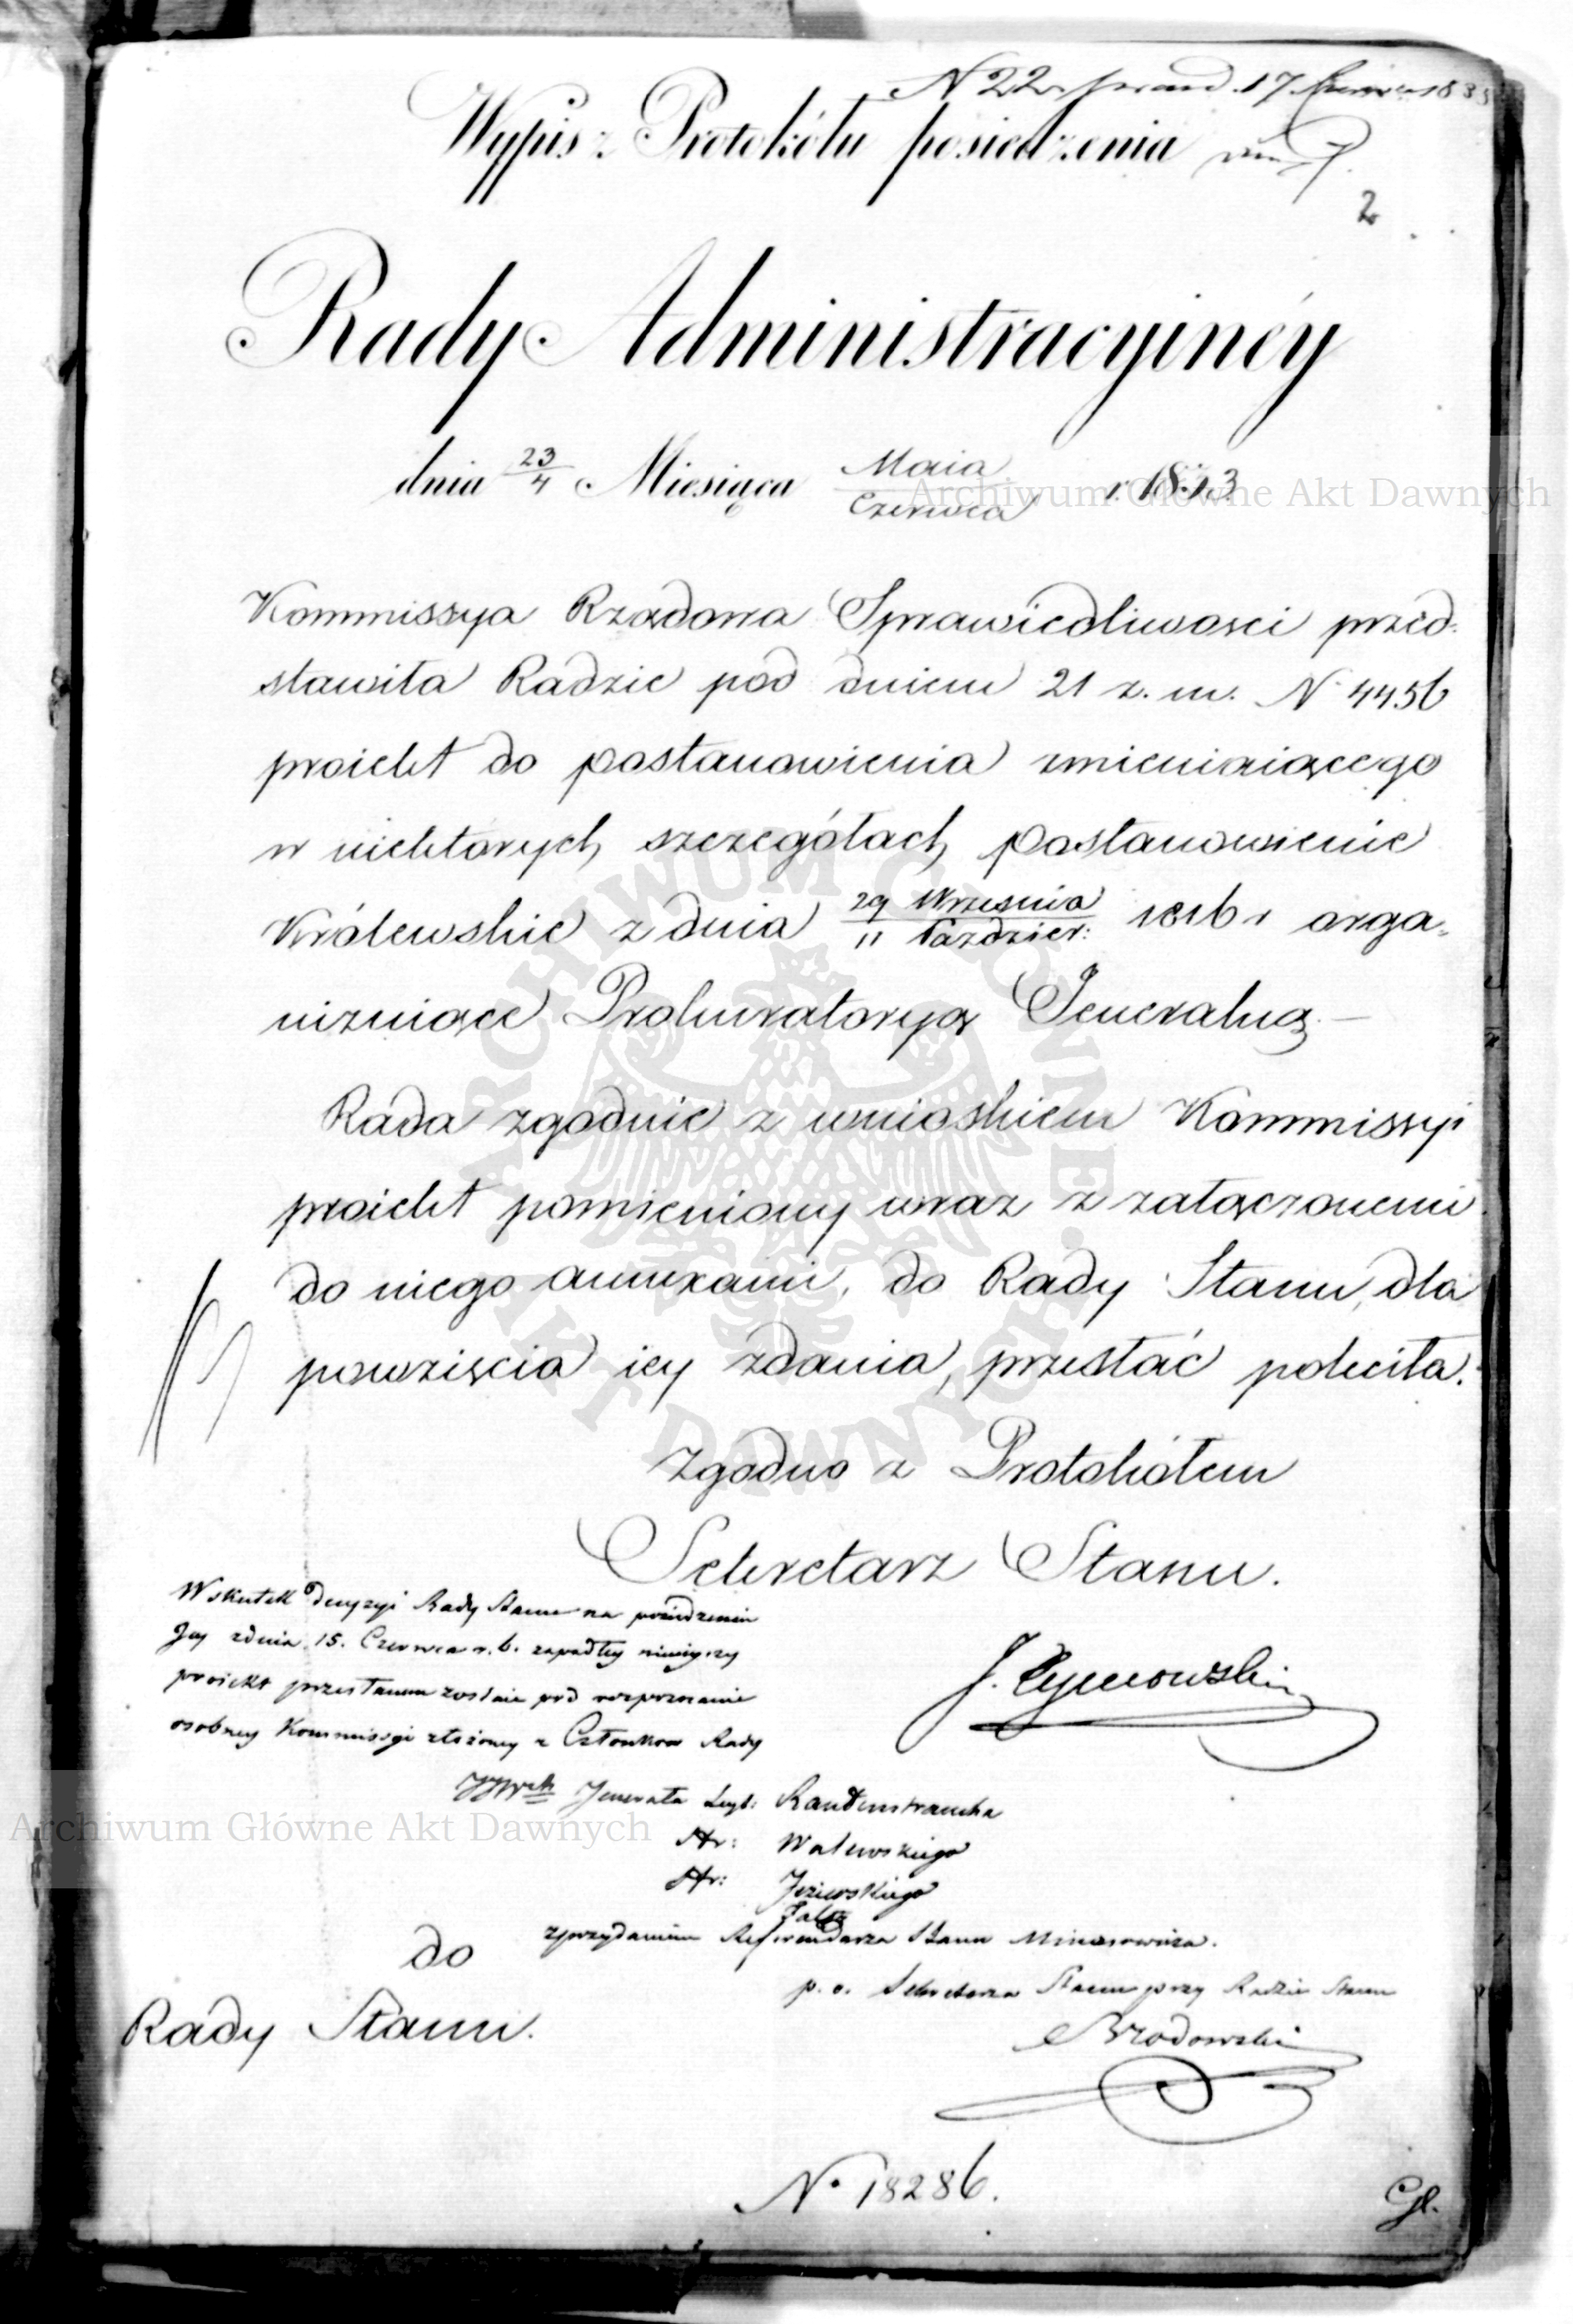 N 22 17 Czerwca 1833
Wypis z Protokółu posiedzenia
2
Rady Administracyinéy
dnia 23/4 Miesiąca Maia/Czerwca r. 1833
Kommissya Rządowa Sprawiedliwosci przed-
stawiła Radzie pod dniem 21 z. m. N 4456
proiekt do postanowienia zmieniaiącego
w niektórych szczegółach postanowienie
Królewskie z dnia 29 Września/11 Paździer: 1816 r orga-
nizuiące Prokuratoryą Jeneralną.—
Rada zgodnie z wnioskiem Kommissyi
proiekt pomieniony wraz z załączonemi
do niego annexami, do Rady Stanu, dla
powzięcia iey zdania, przesłać poleciła.
Zgodno z Protokółem
Sekretarz Stanu.
J. Tymowski
W skutek decyzyi Rady Stanu na posiedzeniu
Jey z dnia 15. Czerwca r. b. zapadłey ninieyszy
proiekt przesłanem zostaie pod rozpoznanie
osobney Kommissyi złożoney z Członkow Rady
JJWch Jenerała Leyt: Rautenstraucha
Hr: Walewskiego
Hr: Jezierskiego
z przydaniem Referendarza Stanu Minasowicza.
p. o. Sekretarza Stanu przy Radzie Stanu
Brodowski
do
Rady Stanu.
N° 18286.
Gl.
Archiwum Główne Akt Dawnych
ARCHIWUM GŁÓWNE AKT DAWNYCH
Archiwum Główne Akt Dawnych